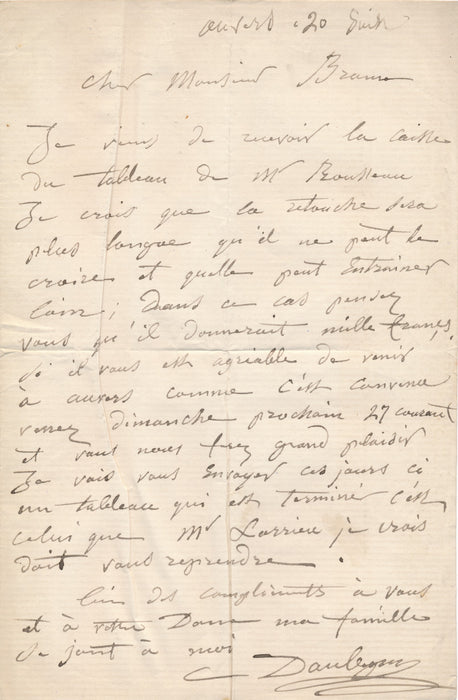 auvers 20 Juin
Cher Monsieur Brame
Je viens de recevoir la caisse
du tableau de Mr Rousseau
Je crois que la retouche sera
plus longue qu'il ne peut le
croire et quelle peut Entrainer
loin; Dans ce cas pensez
vous qu'il donnerait mille francs,
Si il vous est agréable de venir
à auvers comme c'est convenu
venez dimanche prochain 27 courant
et vous nous frez grand plaisir
Je vais vous Envoyer ces jours ci
un tableau qui est terminé c'est
celui que Mr Larrieu je crois
doit vous reprendre.
bien des compliments à vous
et à votre Dame ma famille
se joint à moi
Daubigny